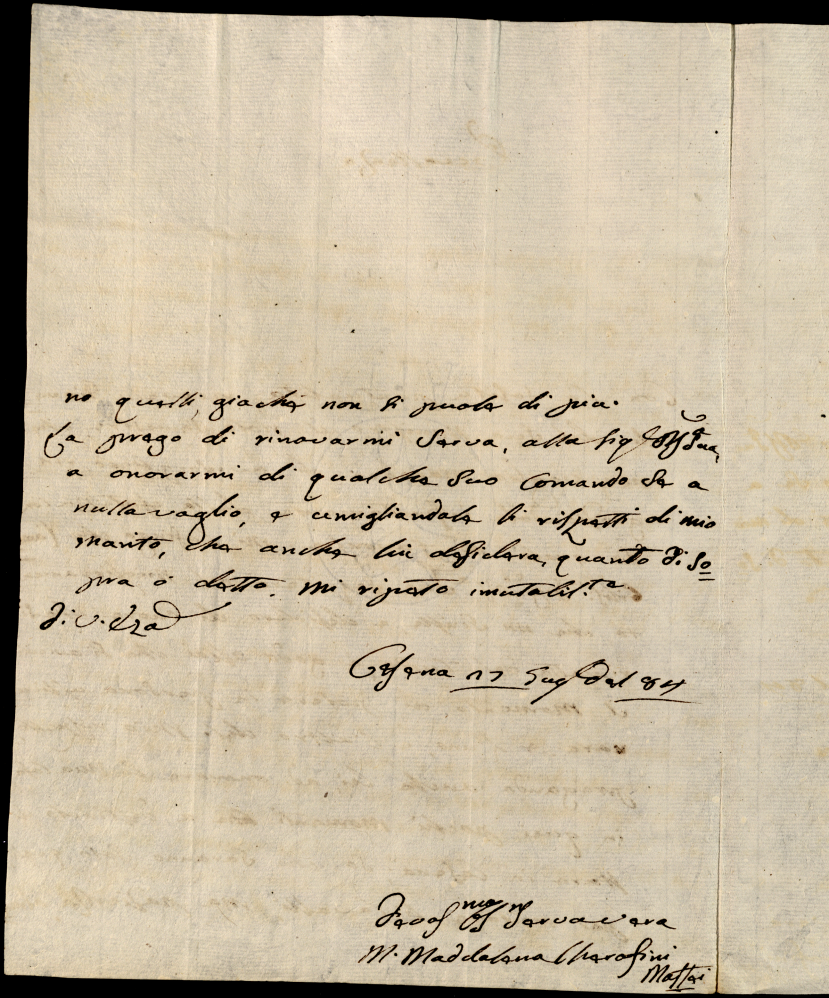 no questi, giachè non si puole di più.
La prego di rinovarmi Serva, alla Sig.ª
a onorarmi di qualche Suo Comando Se a
nulla vaglio, e umigliandole li rispetti di mio
marito, che anche lui desidera, quanto di so=
pra ò detto. mi ripeto imutabil.te
di V. Ecza
Cesena 17 Lug del 84
Devos.ma Serva vera
M. Maddalena Cherafini
Mattei